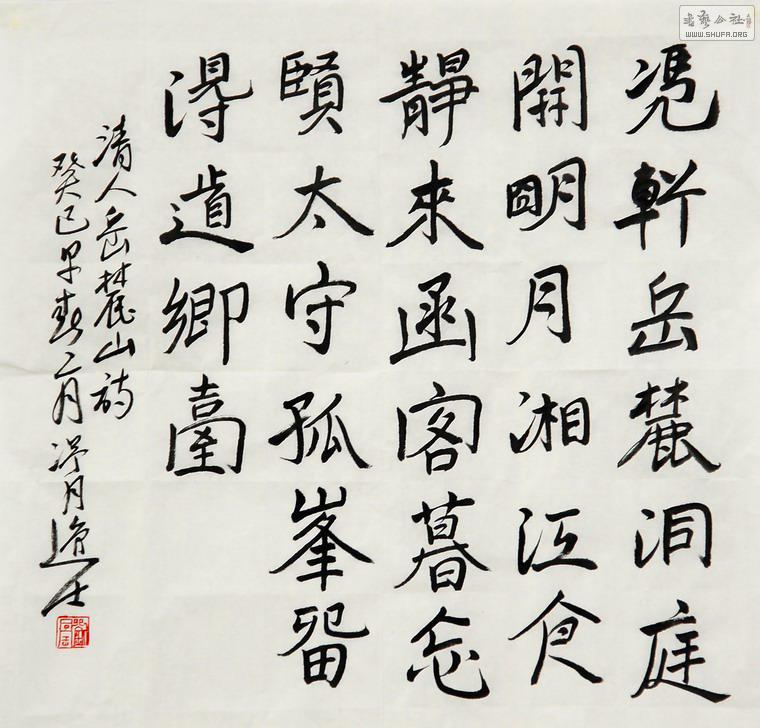 凴軒岳麓洞庭
開明月湘江食
靜來函客暮忘
賢太守孤峯留
得道鄉臺
清人岳麓山詩
癸巳早春二月月逸士
書藝公社
WWW.SHUFA.ORG